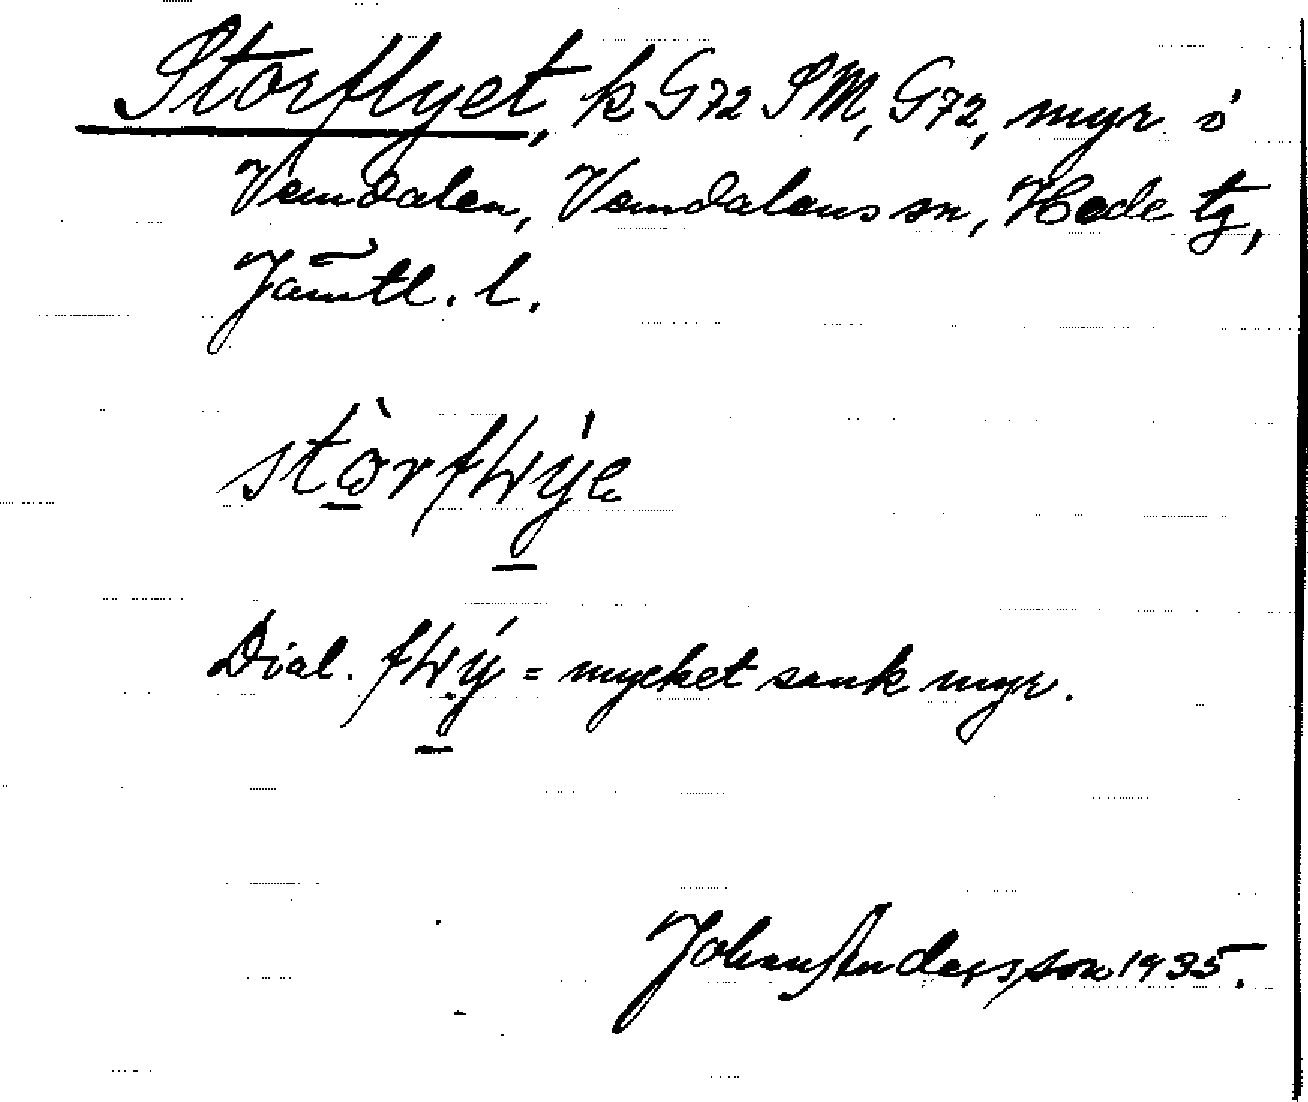 Storflyet, k G72 SM, G72, myr i
Vemdalen, Vemdalens sn, Hede tg,
Jämtl. l.
Dial. = mycket sank myr.
Johan Andersson 1935.